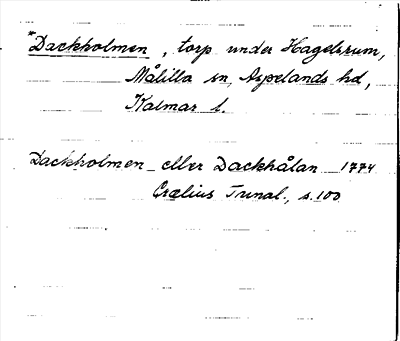 *Dackholmen, torp under Hagelsrum,
Målilla sn, Aspelands hd,
Kalmar l.
Dackholmen eller Dackhålan 1774
Crælius Tunal., s. 100